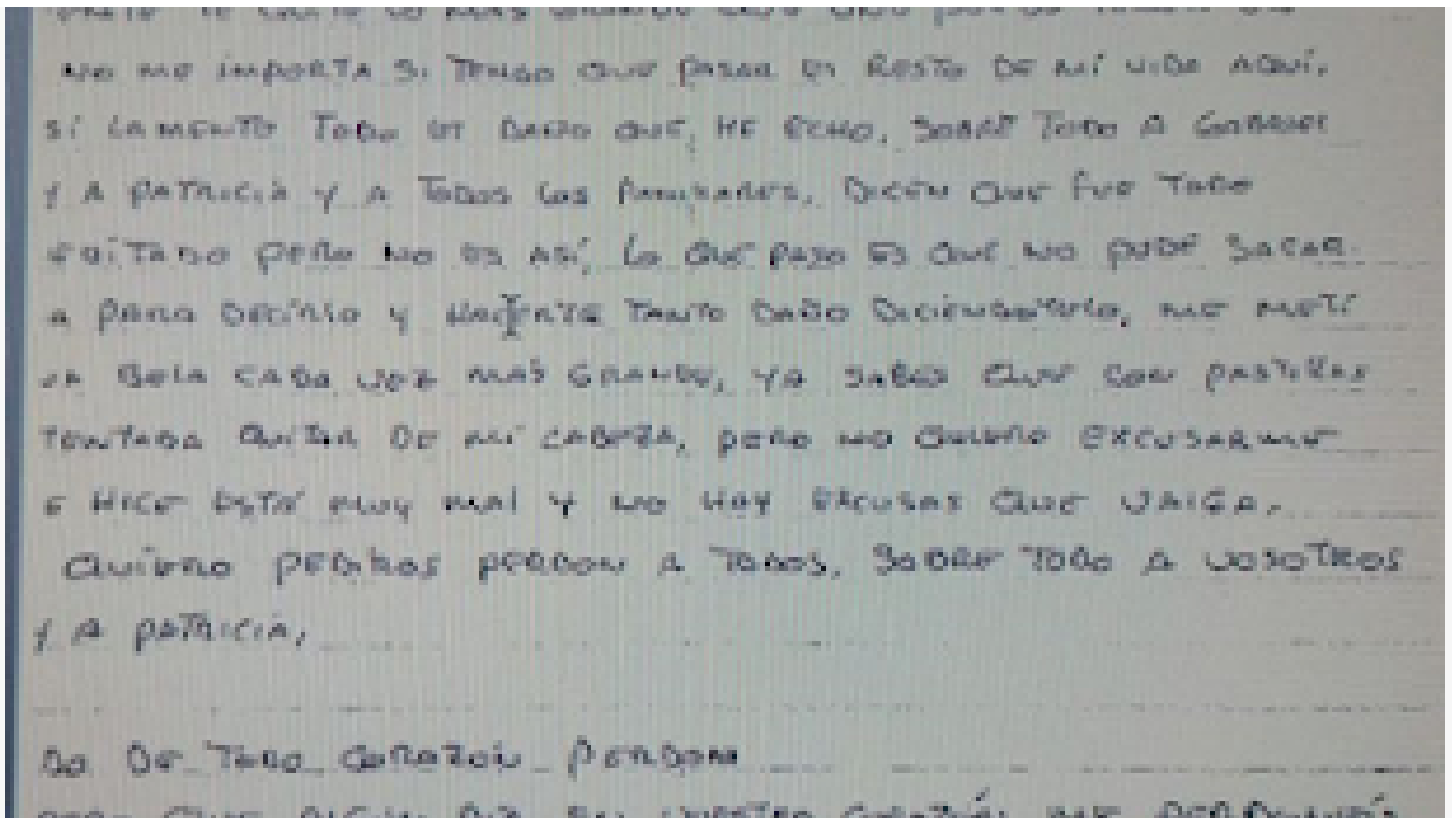 NO ME IMPORTA SI TENGO QUE PASAR EL RESTO DE MÍ VIDA AQUÍ,
SÍ LAMENTO TODO EL DAÑO QUE, HE ECHO, SOBRE TODO A GABRIEL
Y A PATRICIA Y A TODOS LOS FAMILIARES, DICEN QUE FUE TODO
PERO NO ES ASÍ, LO QUE PASO ES QUE NO PUDE SACAR
A PARA DECIRLO Y HACERTE TANTO DAÑO DICIENDOTELO, ME METÍ
BOLA CADA VEZ MAS GRANDE, YA SABES QUE CON PASTILLAS
QUITAR DE MI CABEZA, PERO NO QUIERO EXCUSARME
E HICE ESTÁ MUY MAL Y NO HAY EXCUSAS QUE VALGA,
QUIERO PEDIROS PERDON A TODOS, SOBRE TODO A VOSOTROS
Y A PATRICIA,
DO DE TODO CORAZÓN PERDON
QUE ALGUN DIA CORAZÓN